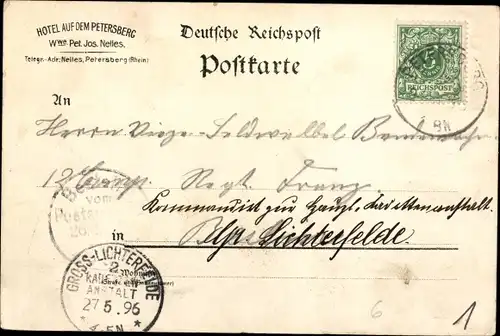 HOTEL AUF DEM PETERSBERG
Wwe Pet. Jos. Nelles.
Telegr.-Adr: Nelles, Petersberg (Rhein)
Deutsche Reichspost
Postkarte
REICHSPOST
8-9N
An
Herrn Vize-Feldwebel
12 Comp. Regt. Franz.
vom
Kommandirt zur Haupt-Kadettenanstalt.
in Lichterfelde.
GROSS-LICHTERFELDE
2
ANSTALT
27 5. 96
4-5N
6
1